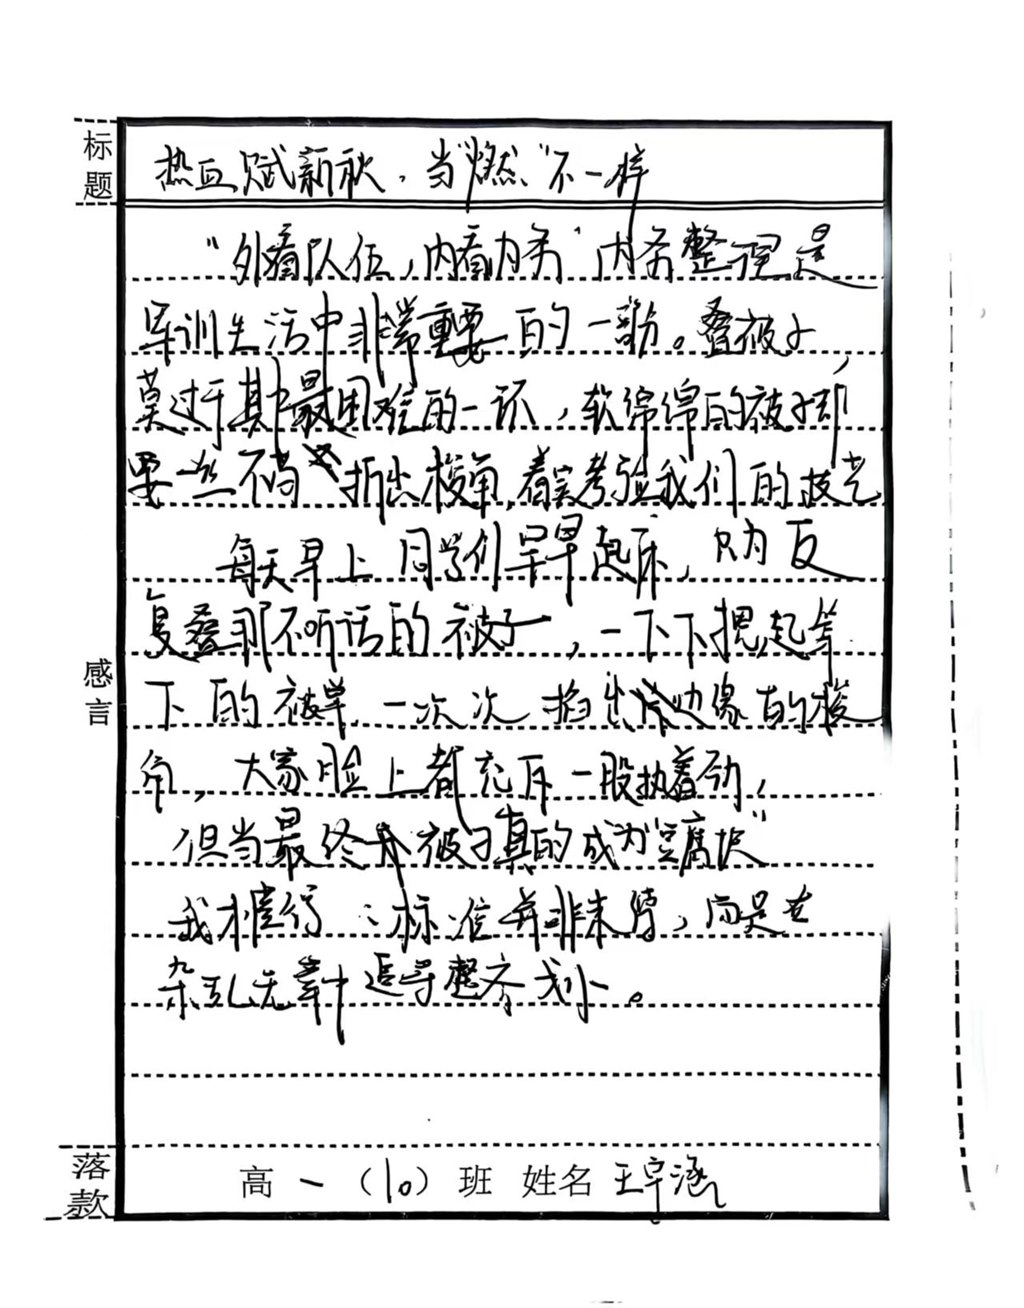 标题
热血赋新秋，当“燃”不一样
“外看队伍，内看内务”内务整理是
军训生活中非常重要的一部分。叠被子，
莫过于其中最困难的一环，软绵绵的被子却
要一丝不苟折出棱角，着实考验我们的技艺
每天早上同学们早早起床，只为反
复叠那不听话的被子，一下下把起
下的被单，一次次掐出边缘的棱
角，大家脸上都充斥一股执着劲，
但当最终被子真的成为“豆腐块”
我懂得：标准并非束缚，而是在
杂乱无章中追寻整齐划一。
感言
落款
高一（10）班 姓名 王宇涵